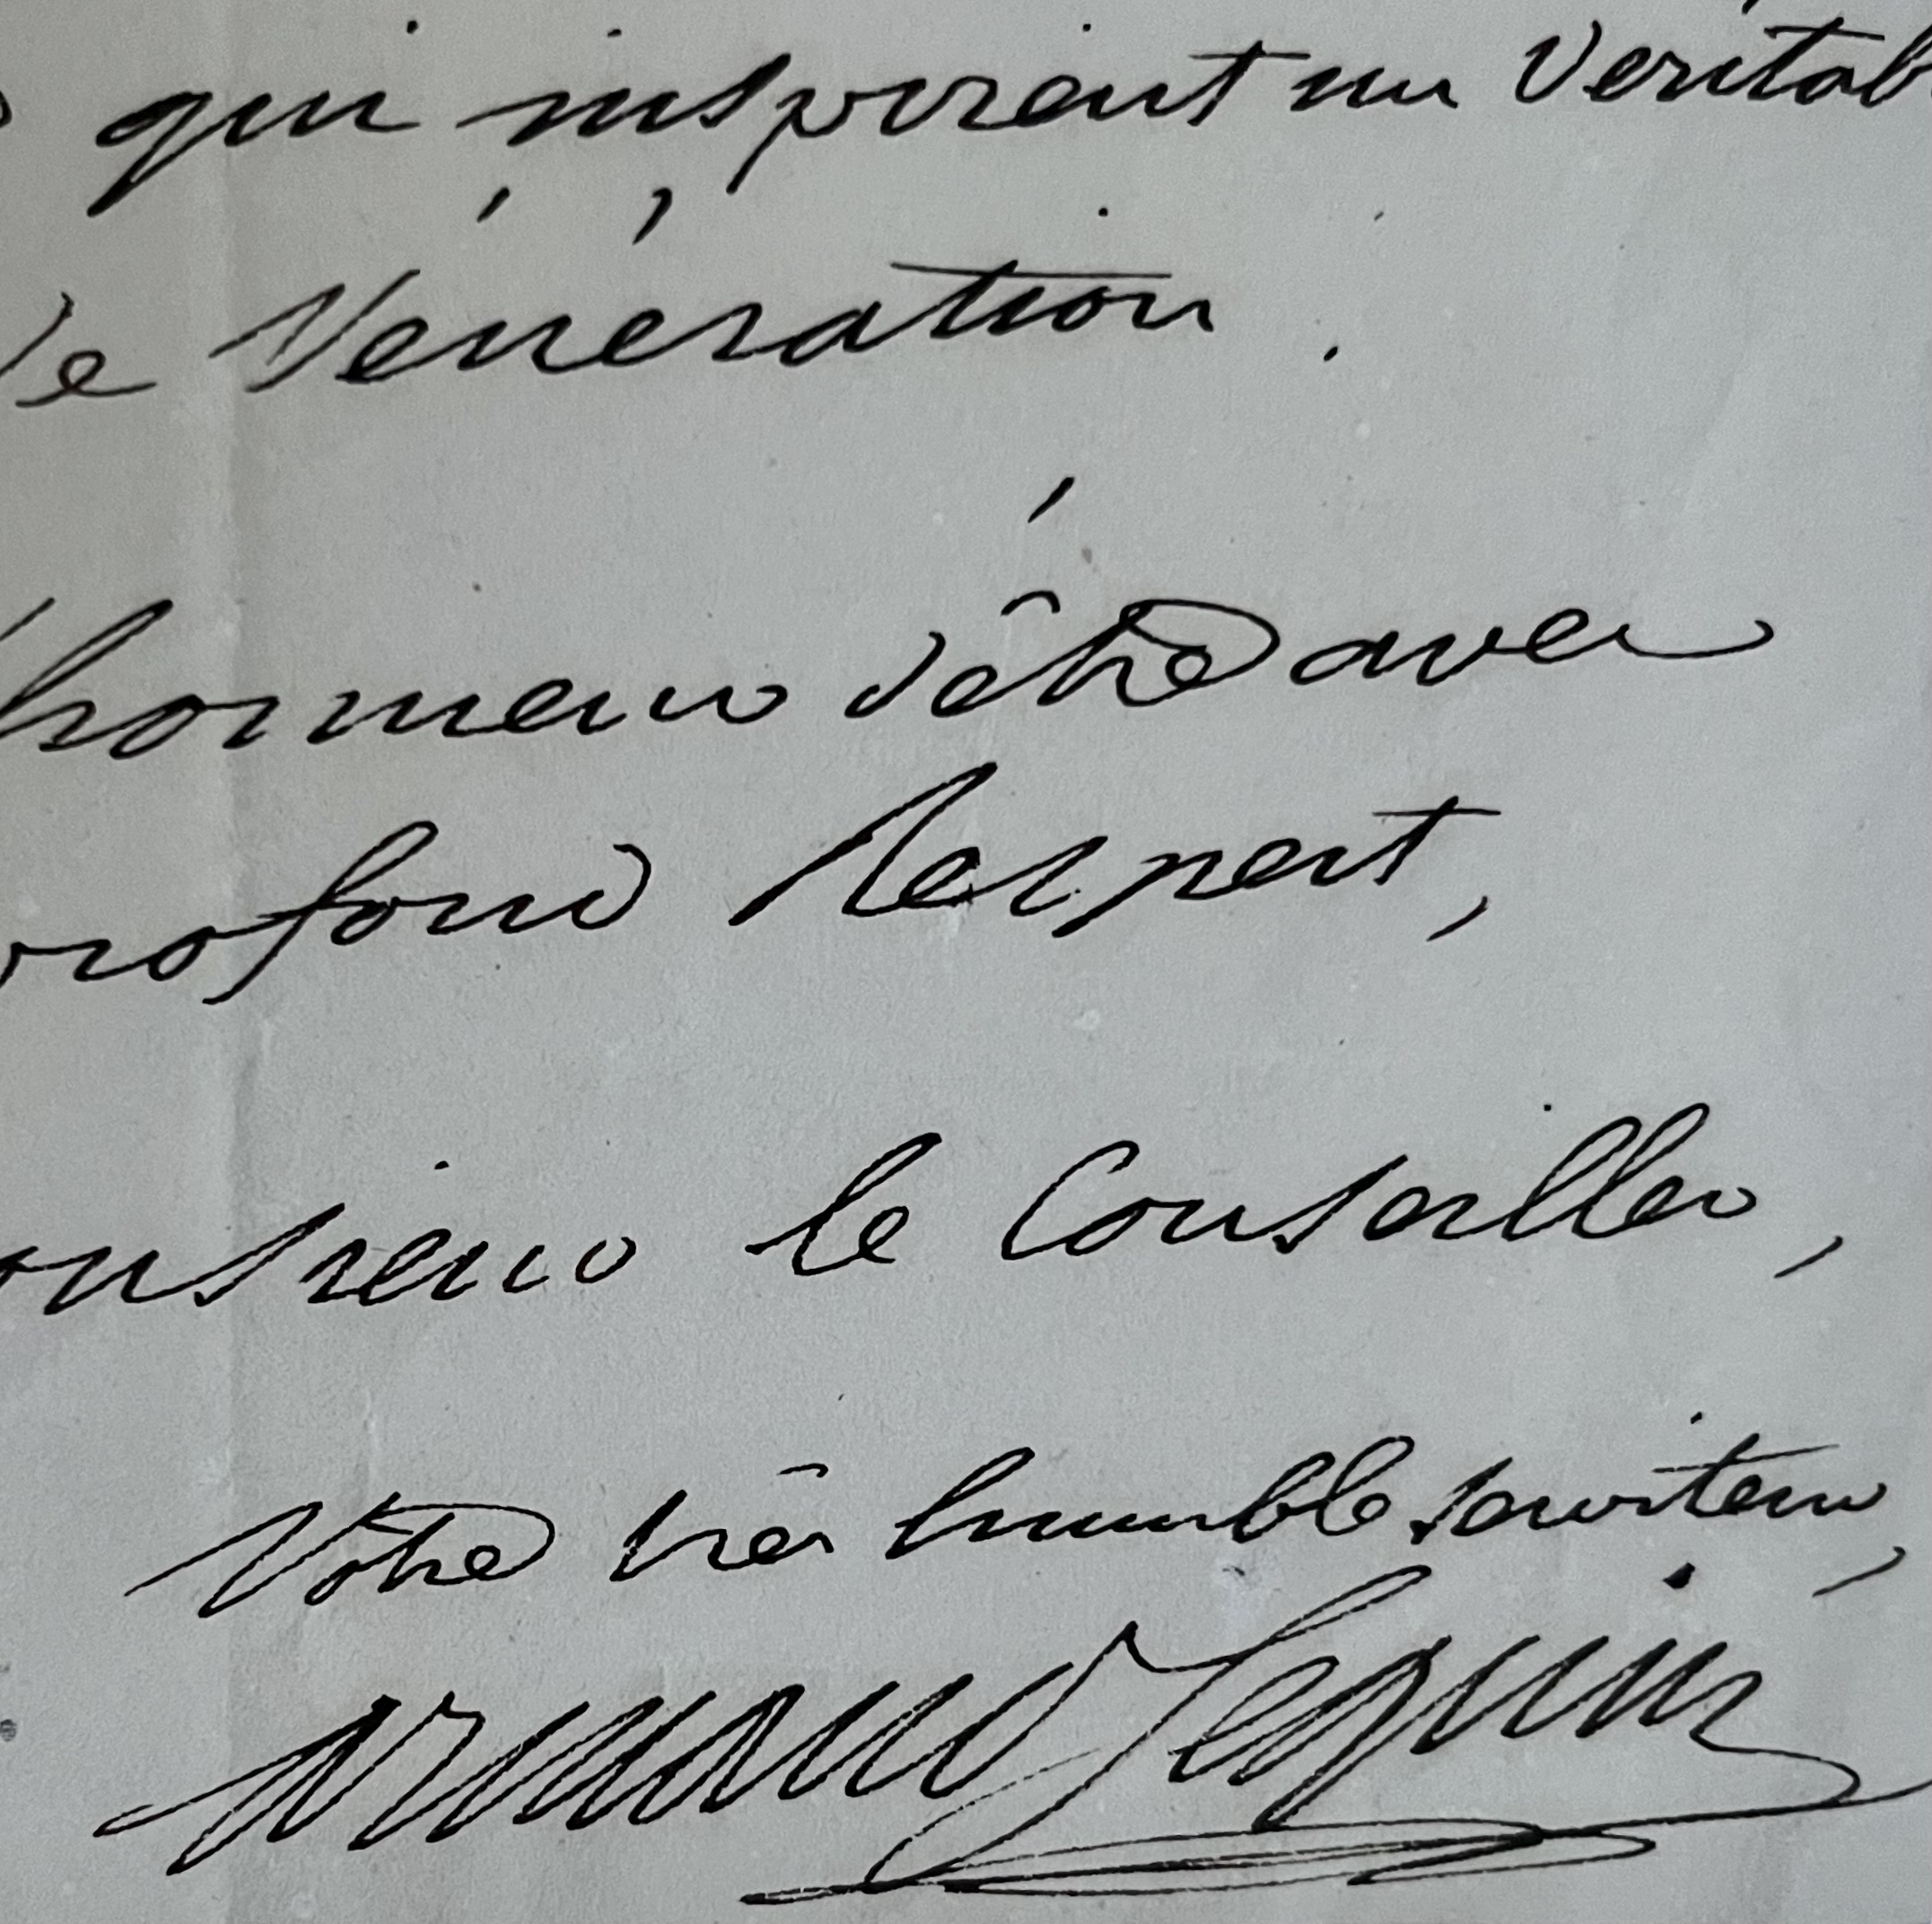 qui inspirent un véritab
de Vénération.
l'honneur d'être avec
profond Respect,
onsieur le Conseiller,
Votre très humble serviteur,
Armand Seguin